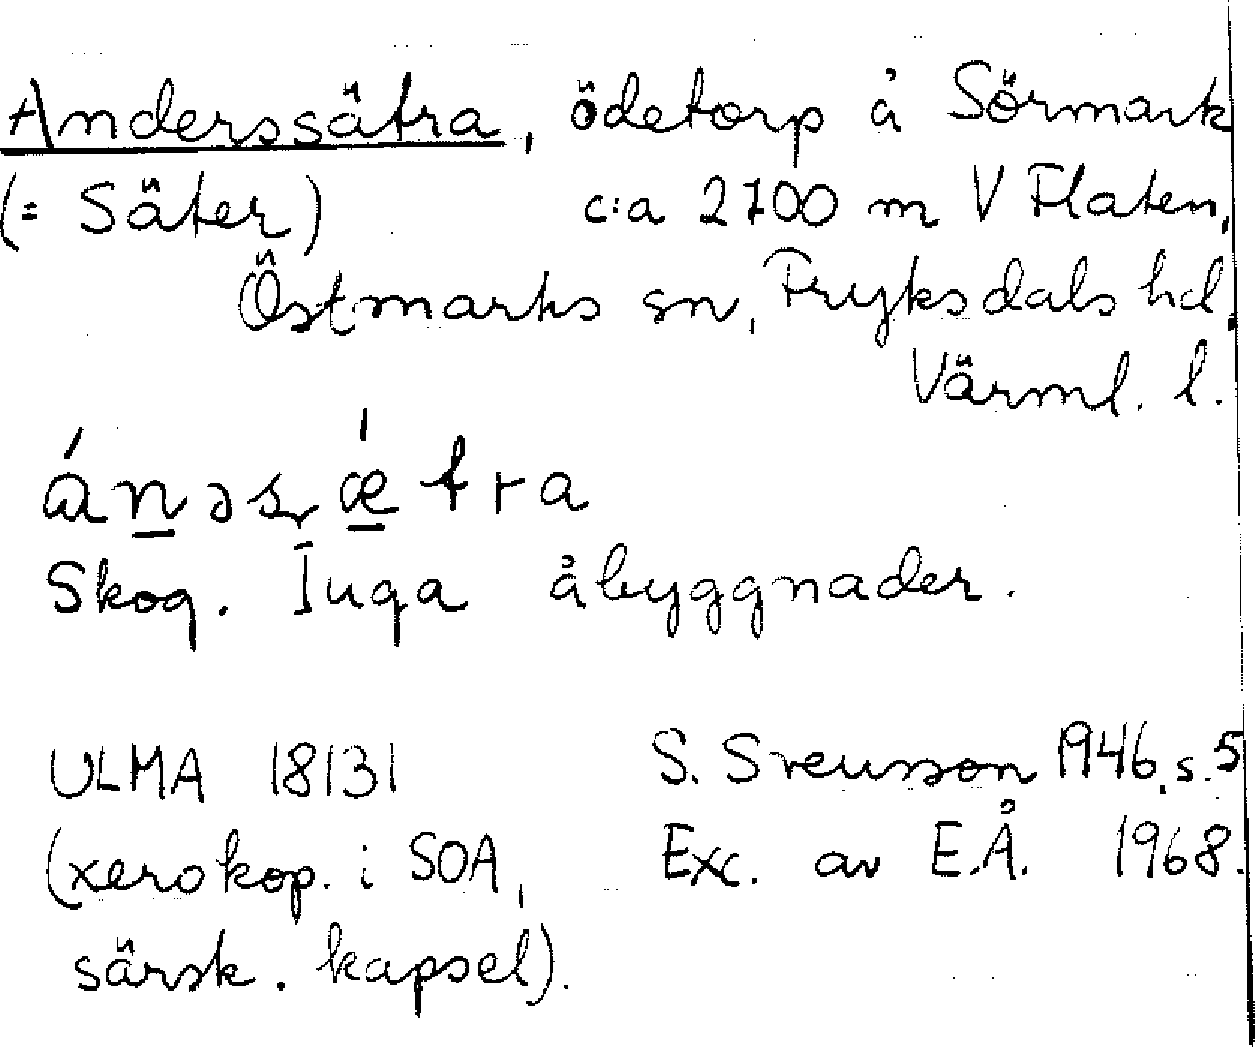 Anderssätra, ödetorp å Sörmark
(= Säter) c:a 2700 m V Flaten,
Östmarks sn, Fryksdals hd,
Värml. l.
án̲əsǽ̲tra
Skog. Inga åbyggnader.
ULMA 18131 S. Svensson 1946, s. 5
(xerokop. i SOA, Exc. av E.Å. 1968.
särsk. kapsel).